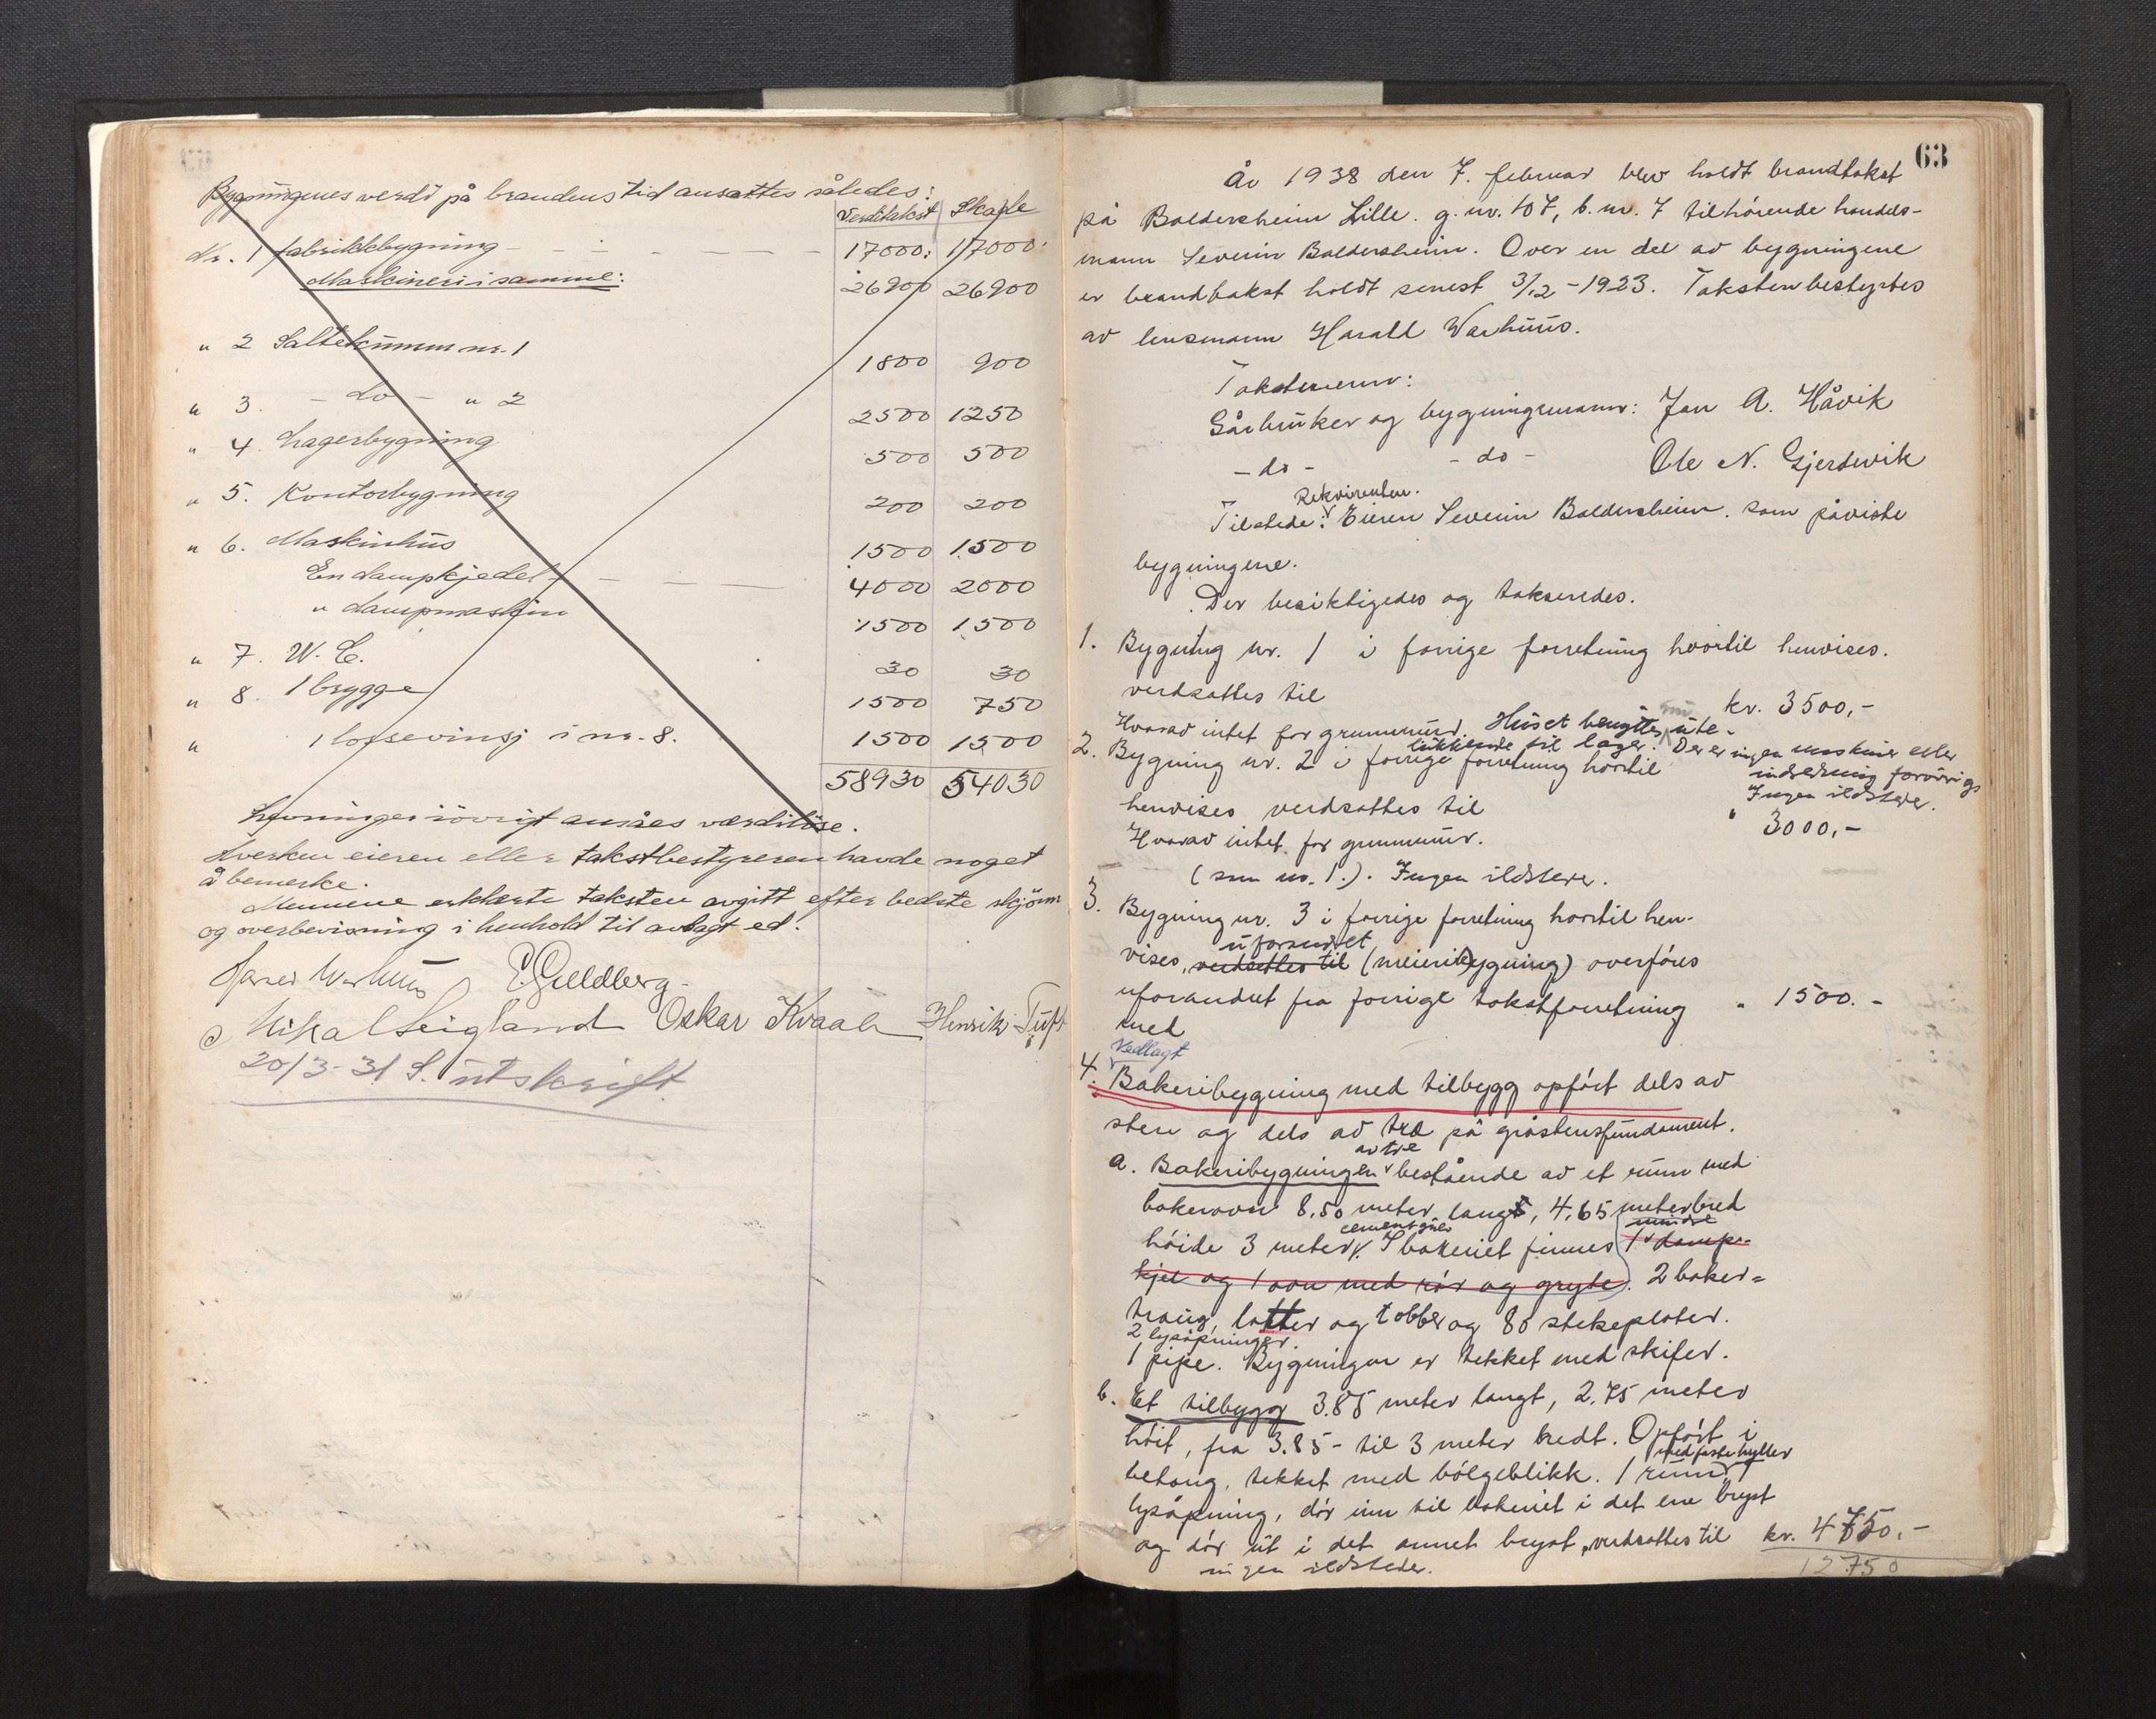 Bygningenes verdi på brandens tid ansattes således:
Verditakst Skade
Nr. 1 fabrikkbygning 17000: 17000:
Maskineri i samme: 26900 26900
" 2 Saltekummen nr. 1 1800 900
" 3. - do - " 2 2500 1250
" 4. Lagerbygning 500 500
" 5. Kontorbygning 200 200
" 6. Maskinhus 1500 1500
En dampkjedel 4000 2000
" dampmaskin 1500 1500
" 7. W. C. 30 30
" 8. 1 brygge 1500 750
" 1 lossevinsj i nr. 8. 1500 1500
58930 54030
Levninger iövrigt ansåes værdilöse.
Hverken eieren eller takstbestyreren havde noget
å bemerke.
Mennene erklærte taksten avgitt efter bedste skjönn
og overbevisning i henhold til avlagt ed.
E. Guldberg
Oskar Kvaale Henrik Tuft
20/3-31 S. utskrift
63
År 1938 den 7. februar blev holdt brandtakst
på Baldersheim Lille. g. nr. 107, b. nr. 7 tilhörende handels-
mann Severin Baldersheim. Over en del av bygningene
er brandtakst holdt senest 3/12-1923. Taksten bestyrtes
av lensmann Harald Warhuus.
Takstmenn:
Gårbruker og bygningsmann: Jan A. Håvik
- do - - do - Ole N. Gjerdevik
Rekvirenten.
Tilstede: Eieren Severin Baldersheim. som påviste
bygningene.
Der besiktigedes og takseredes.
1. Bygning nr. 1 i forrige forretning hvortil henvises.
verdsattes til kr. 3500,-
Hvorav intet for grunnmur. Huset benyttes nu ute-
lukkende til lager. Der er ingen maskiner eller
indredning forövrig
Ingen ildsteder.
2. Bygning nr. 2 i forrige forretning hvortil
henvises verdsattes til " 3000,-
Hvorav intet for grunnmur.
(som nr. 1.). Ingen ildsteder.
3. Bygning nr. 3 i forrige forretning hvortil hen-
uforandret
vises, verdsattes til (meieribygning) overföres
uforandret fra forrige takstforretning " 1500.-
med
Vedlagt
4. Bakeribygning med tilbygg opfört dels av
sten og dels av tre på gråstensfundament.
av tre
a. Bakeribygningen bestående av et rum med
bakerovn 8,50 meter langt, 4,65 meter bred
cementgulv mindre
höide 3 meter. I bakeriet finnes 1 damp-
kjel og 1 ovn med rör og gryte. 2 baker=
traug, latter og tobber og 80 stekeplater.
2 lysåpninger.
1 pipe. Bygningen er tekket med skifer.
b. Et tilbygg 3.85 meter langt, 2,75 meter
höit, fra 3.85- til 3 meter bredt. Opfört i
med faste hyller
betong, tekket med bölgeblikk. 1 rum, 1
lysåpning, dör inn til bakeriet i det ene bryst
og dör ut i det annet bryst, verdsattes til kr. 4750.-
ingen ildsteder. 12750